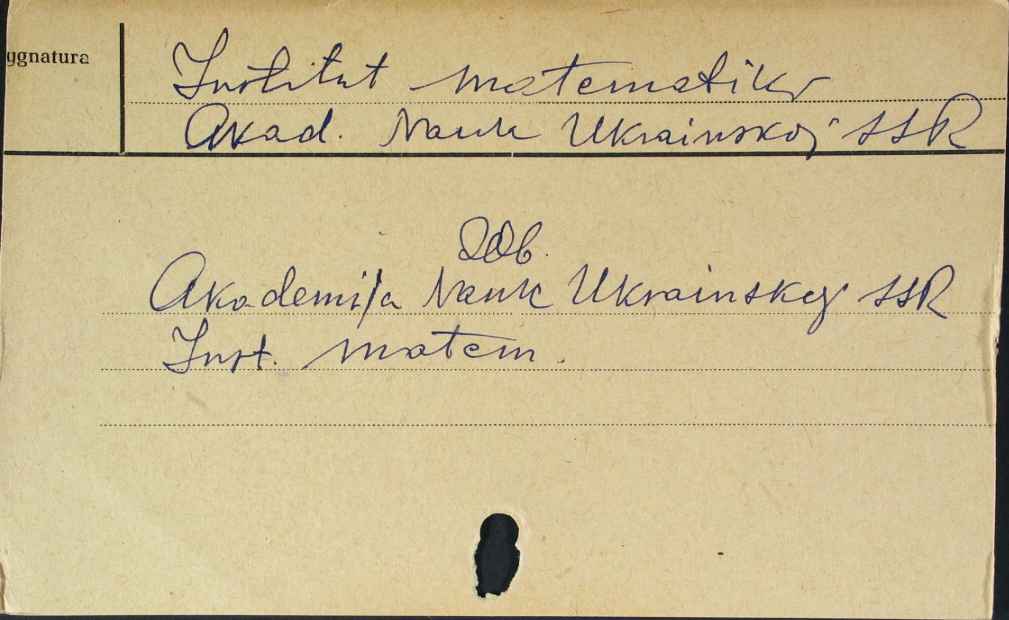 ygnatura
Institut matematiki
Akad. Nauk Ukrainskoj SSR
Zob.
Akademija Nauk Ukrainskoj SSR
Inst. matem.